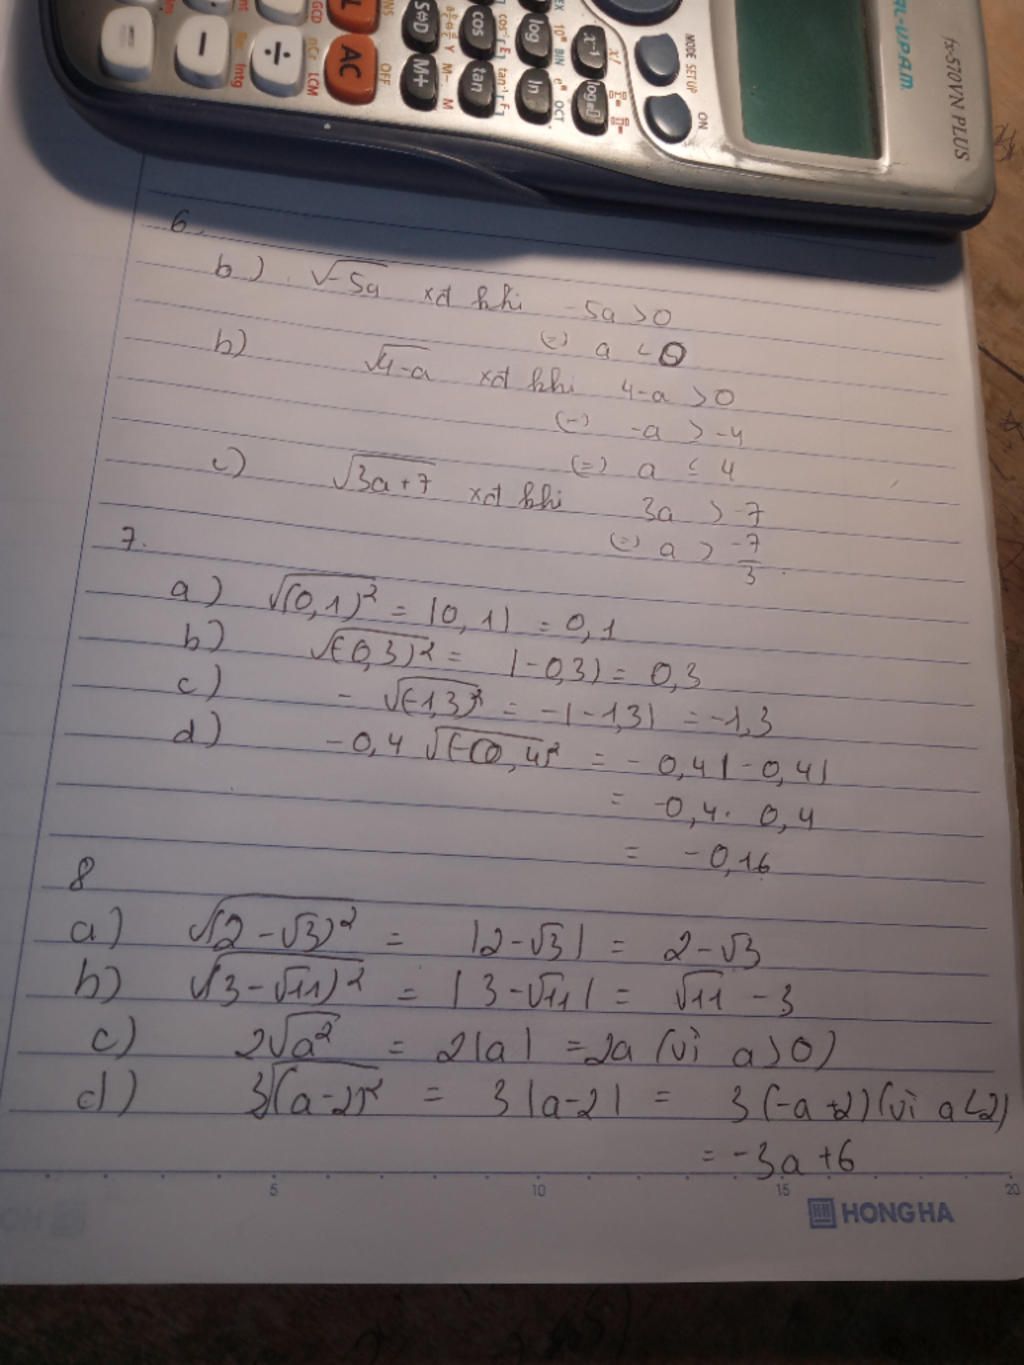 fx-570VN PLUS
MODE SETUP ON
x⁻¹ log
cos tan ln
S⇔D M+ AC
÷ −
OFF
6.
b) √-5a xđ khi -5a > 0
(=) a < 0
b) √4-a xđ khi 4-a > 0
(=) -a > -4
(=) a < 4
c) √3a+7 xđ khi 3a > -7
(=) a > -7/3
7.
a) √(0,1)² = |0,1| = 0,1
b) √(-0,3)² = |-0,3| = 0,3
c) - √(-1,3)² = -|-1,3| = -1,3
d) -0,4 √(-0,4)² = - 0,4|-0,4|
= -0,4. 0,4
= -0,16
8
a) √(2-√3)² = |2-√3| = 2-√3
b) √(3-√11)² = |3-√11| = √11 -3
c) 2√a² = 2|a| = 2a (vì a>0)
d) 3√(a-2)² = 3|a-2| = 3(-a+2) (vì a<2)
= -3a+6
5 10 15 20
HONG HA